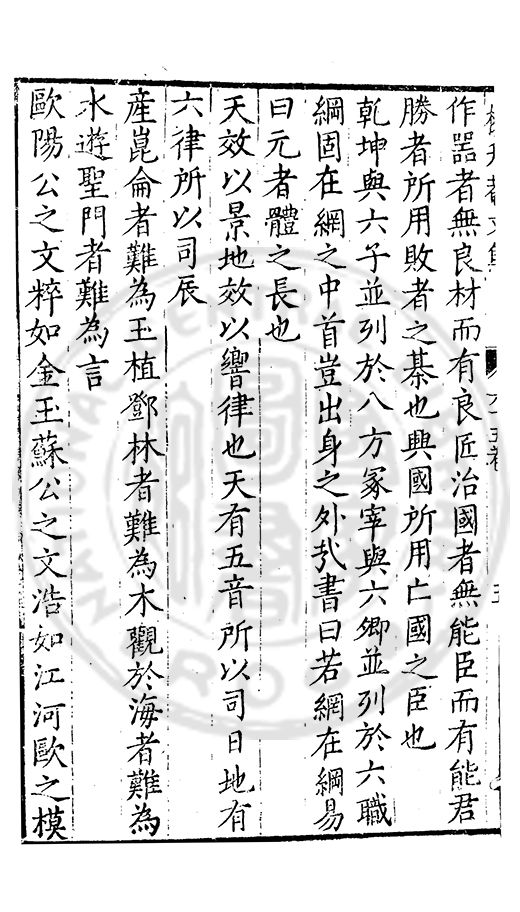 作器者無良材而有良匠治國者無能臣而有能君
勝者所用敗者之棊也興國所用亡國之臣也
乾坤與六子並列於八方冢宰與六卿並列於六職
綱固在網之中首豈出身之外㢤書曰若網在綱易
曰元者體之長也
天效以景地效以響律也天有五音所以司日地有
六律所以司辰
産崑侖者難為玉植鄧林者難為木觀於海者難為
水遊聖門者難為言
歐陽公之文粹如金玉蘇公之文浩如江河歐之模